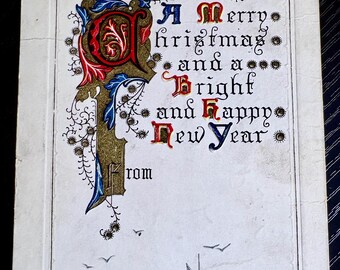 A Merry
Christmas
and a
Bright
and Happy
New Year
From